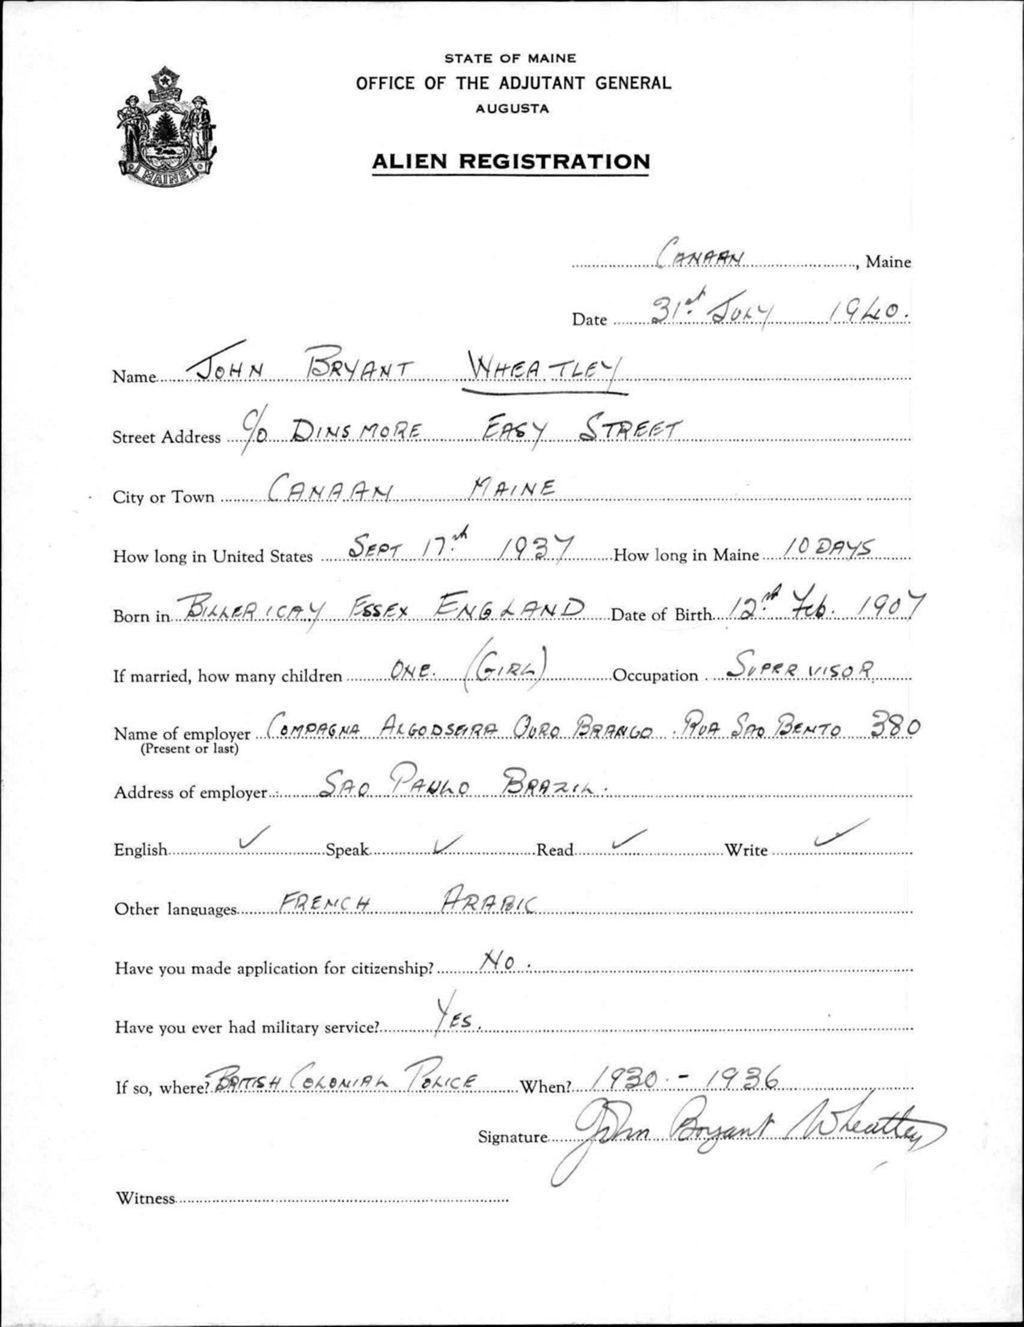 STATE OF MAINE
OFFICE OF THE ADJUTANT GENERAL
AUGUSTA
ALIEN REGISTRATION
MAINE
CANAAN, Maine
Date 31st JULY 1940.
Name JOHN BRYANT WHEATLEY
Street Address C/O DINSMORE EASY STREET
City or Town CANAAN MAINE
How long in United States SEPT 17th 1937 How long in Maine 10 DAYS
Born in BILLERICAY ESSEX ENGLAND Date of Birth 12th Feb. 1907
If married, how many children ONE. (GIRL) Occupation SUPERVISOR
Name of employer COMPAGNA ALGODSEIRA OURO BRANCO. RUA SAO BENTO 380
(Present or last)
Address of employer SAO PAULO BRAZIL.
English ✓ Speak ✓ Read ✓ Write ✓
Other languages FRENCH ARABIC
Have you made application for citizenship? NO.
Have you ever had military service? YES.
If so, where? BRITISH COLONIAL POLICE When? 1930 - 1936
Signature John Bryant Wheatley
Witness